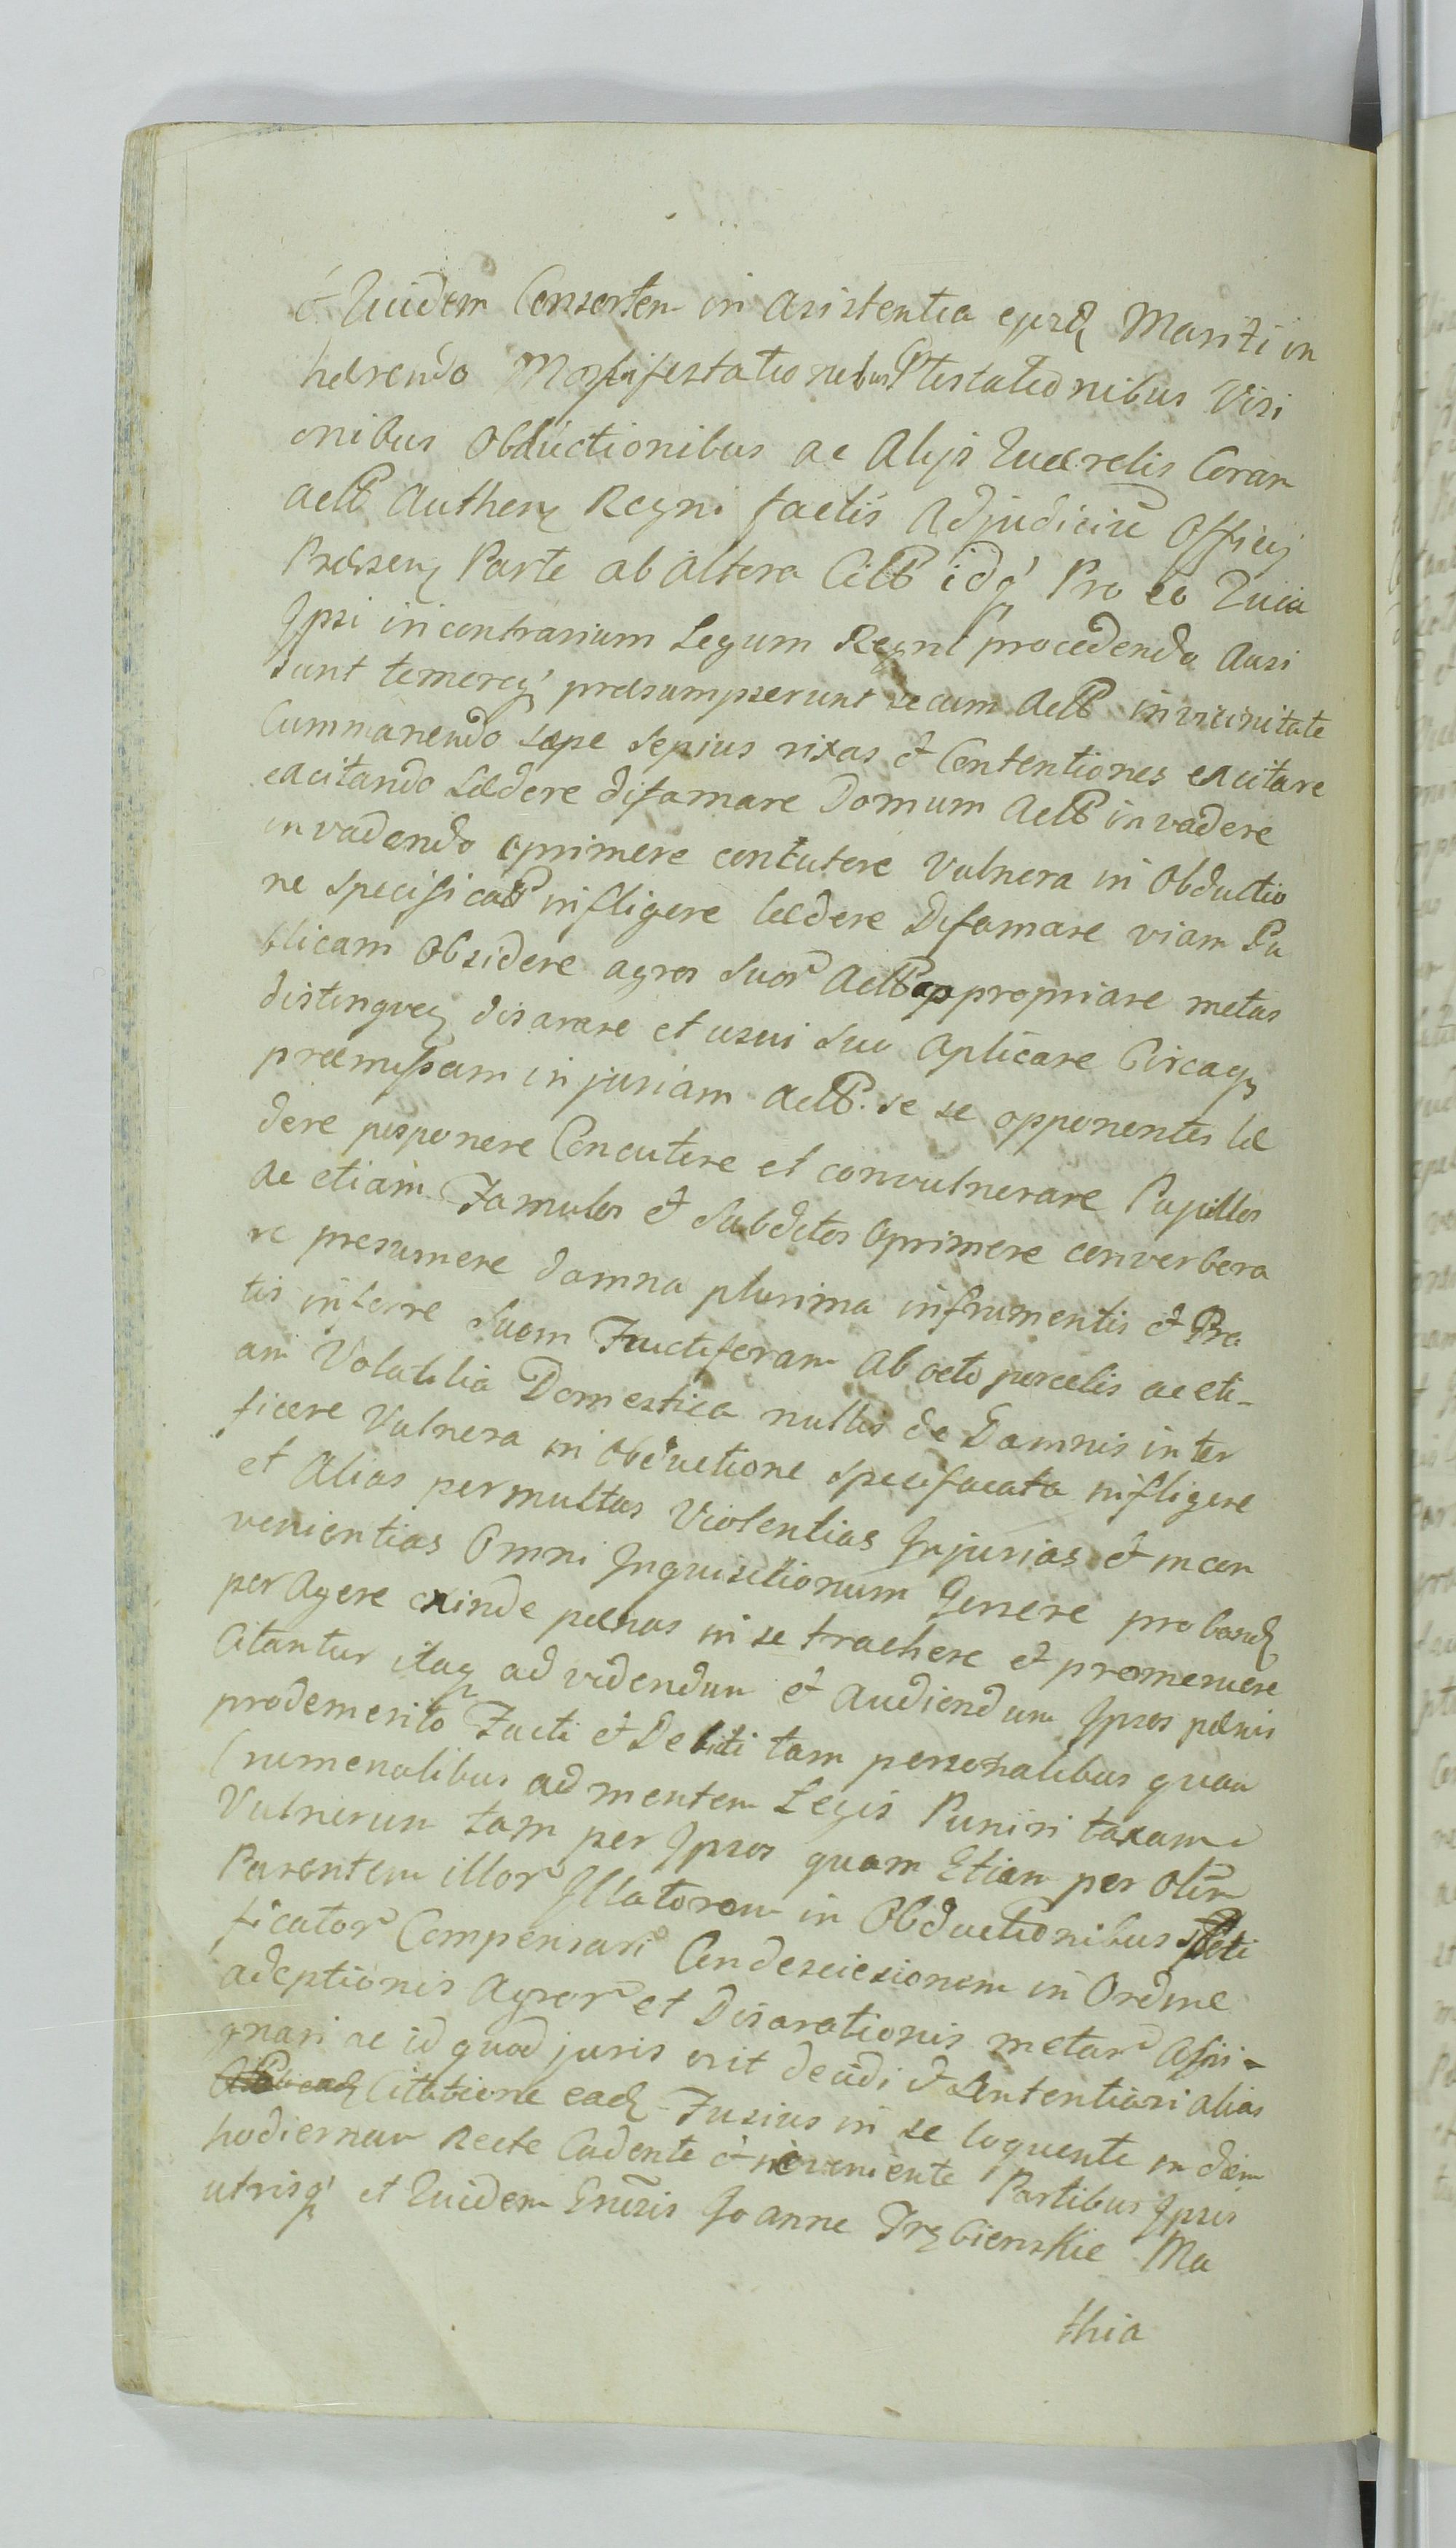 & Quidem Consortem in Asistentia ejusdq Mariti in
hærendo Manifestationibus Ptestationibus Visi
onibus Obductionibus ac Alijs Quærelis Coram
actb Authenq Regni factis Adjudiciũ Officij
Præsenq Parte ab altera Citb idq Pro eo Quia
Ipsi in contrarium Legum Regni procedendo Ausi
sunt temereq præsumpserunt secum Actb in vicinitate
Cummanendo sæpe sepius rixas & Contentiones excitare
excitando Lædere difamare Domum Actb invadere
invadendo oprimere contutere Vulnera in Obductio
ne specificatb infligere lædere Difamare viam Pu
blicam Obsidere agros suor Actb appropriare metas
distingveq disarare et usui suo Aplicare Circaq
præmissam injuriam Actb. se se opponentes læ
dere posponere Concutere et convulnerare Pupillos
ac etiam Famulos & Subditos Oprimere converbera
re presumere damna plurima in frumentis & Pra
tis inferre Suem Fructiferam Ab octo porcelis ac eti-
am Volatilia Domestica nullis de Damnis inter
ficere Vulnera in Obductione specifacata infligere
et Alias permultas Violentias Injurias & incon
venientias Omni Inquisitionum Genere probandq
per Agere exinde pænas in se trachere & promeruere
Citantur itaq ad videndum & Audiendum Ipsos pænis
prodemerito Facti & Debiti tam personalibus quam
Crumenalibus ad mentem Legis Puniri taxam
Vulnerum tam per Ipsos quam Etiam per Olim
Parentem illor Illatorem in Obductionibus speti
ficator Compensari Condesciesionem in Ordine
adeptionis Agror et Disarationis metar Assi-
gnari ac id quod juris erit decidi & Sententiari alias
Citatione eadq Fusius in se loquente in diem
hodiernam Recte Cadente & inveniente Partibus Ipsis
utrisq et Quidem Gnẽsis Joanne Trębienskie Ma
thia